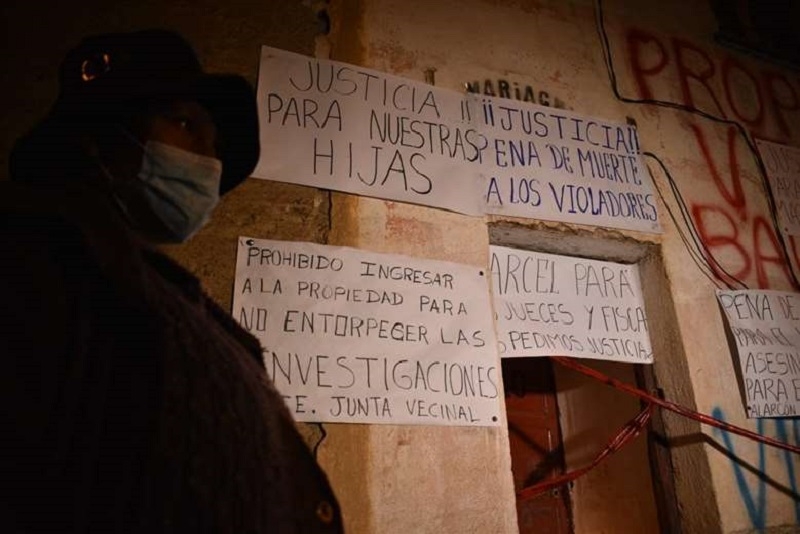 JUSTICIA !!
PARA NUESTRAS
HIJAS
MARIAC
¡¡JUSTICIA!!
PENA DE MUERTE
A LOS VIOLADORES
PROHIBIDO INGRESAR
A LA PROPIEDAD PARA
NO ENTORPECER LAS
INVESTIGACIONES
TE. JUNTA VECINAL
ARCEL PARA
JUECES Y FISCA
PEDIMOS JUSTICIA
PROP
V
BA
PENA DE
PARA EL
ASESIN
PARA E
ALARCÓN